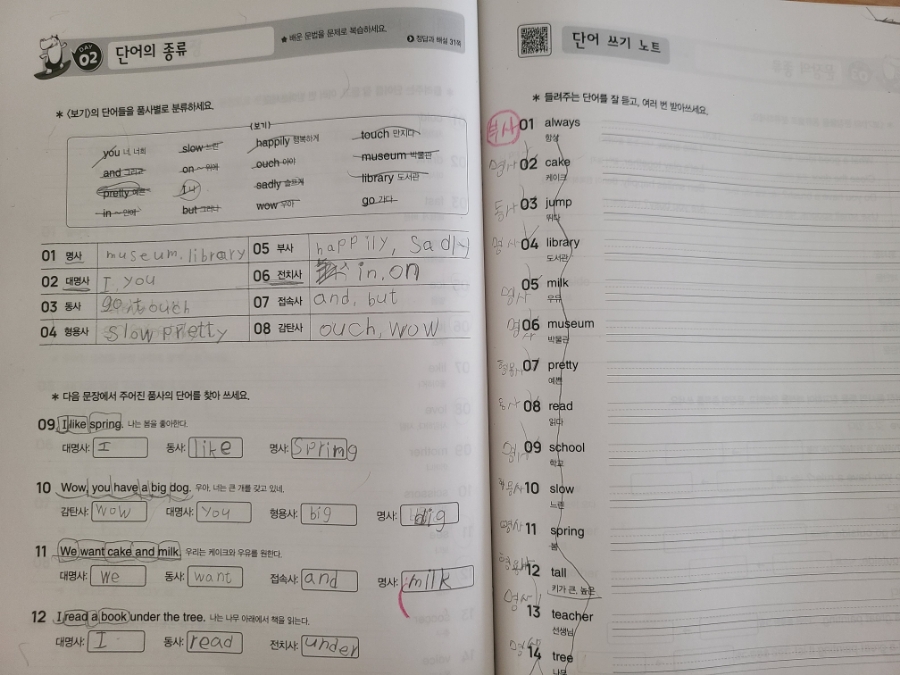 DAY 02 단어의 종류
★ 배운 문법을 문제로 복습하세요.
정답과 해설 31쪽
* <보기>의 단어들을 품사별로 분류하세요.
<보기>
you 너, 너희 slow 느린 happily 행복하게 touch 만지다
and 그리고 on ~ 위에 ouch 아야 museum 박물관
pretty 예쁜 I 나 sadly 슬프게 library 도서관
in ~ 안에 but 그러나 wow 우아 go 가다
01 명사 museum, library 05 부사 happily, sadly
02 대명사 I, you 06 전치사 in, on
03 동사 go touch 07 접속사 and, but
04 형용사 slow pretty 08 감탄사 ouch, wow
* 다음 문장에서 주어진 품사의 단어를 찾아 쓰세요.
09 I like spring. 나는 봄을 좋아한다.
대명사: I 동사: like 명사: spring
10 Wow, you have a big dog. 우아, 너는 큰 개를 갖고 있네.
감탄사: wow 대명사: you 형용사: big 명사:
11 We want cake and milk. 우리는 케이크와 우유를 원한다.
대명사: we 동사: want 접속사: and 명사: milk
12 I read a book under the tree. 나는 나무 아래에서 책을 읽는다.
대명사: I 동사: read 전치사: under
단어 쓰기 노트
* 들려주는 단어를 잘 듣고, 여러 번 받아쓰세요.
부사 01 always
항상
명사 02 cake
케이크
동사 03 jump
뛰다
명사 04 library
도서관
명사 05 milk
우유
명사 06 museum
박물관
형용사 07 pretty
예쁜
동사 08 read
읽다
명사 09 school
학교
형용사 10 slow
느린
명사 11 spring
봄
형용사 12 tall
키가 큰, 높은
명사 13 teacher
선생님
명사 14 tree
나무